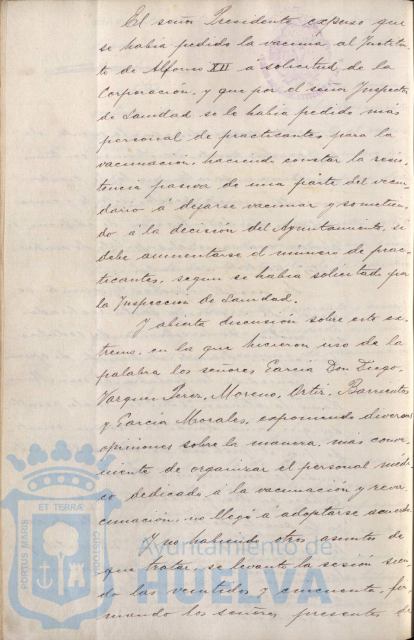 El señor Presidente expuso que
se habia pedido la vacuna al Institu-
to de Alfonso XII á solicitud de la
Corporación, y que por el señor Inspector
de Sanidad se le habia pedido mas
personal de practicantes para la
vacunación haciendo constar la resis-
tencia pasiva de una parte del vecin-
dario á dejarse vacunar y sometien-
do á la decisión del Ayuntamiento, si
debe aumentarse el número de prac-
ticantes, segun se habia solicitado por
la Inspección de Sanidad.
Y abierta discusión sobre este ex-
tremo, en la que hicieron uso de la
palabra los señores Garcia Don Diego,
Vazquez Perez, Moreno, Ortiz, Barrientos
y Garcia Morales, exponiendo diversas
opiniones sobre la manera mas conve-
niente de organizar el personal médi-
co dedicado á la vacunación y reva-
cunación, no llegó á adoptarse acuerdo.
Y no habiendo otros asuntos de
que tratar, se levantó la sesión sien-
do las veintidos y cincuenta, fir-
mando los señores presentes de
PORTUS MARIS
ET TERRÆ
CUSTODIA
Ayuntamiento de
HUELVA